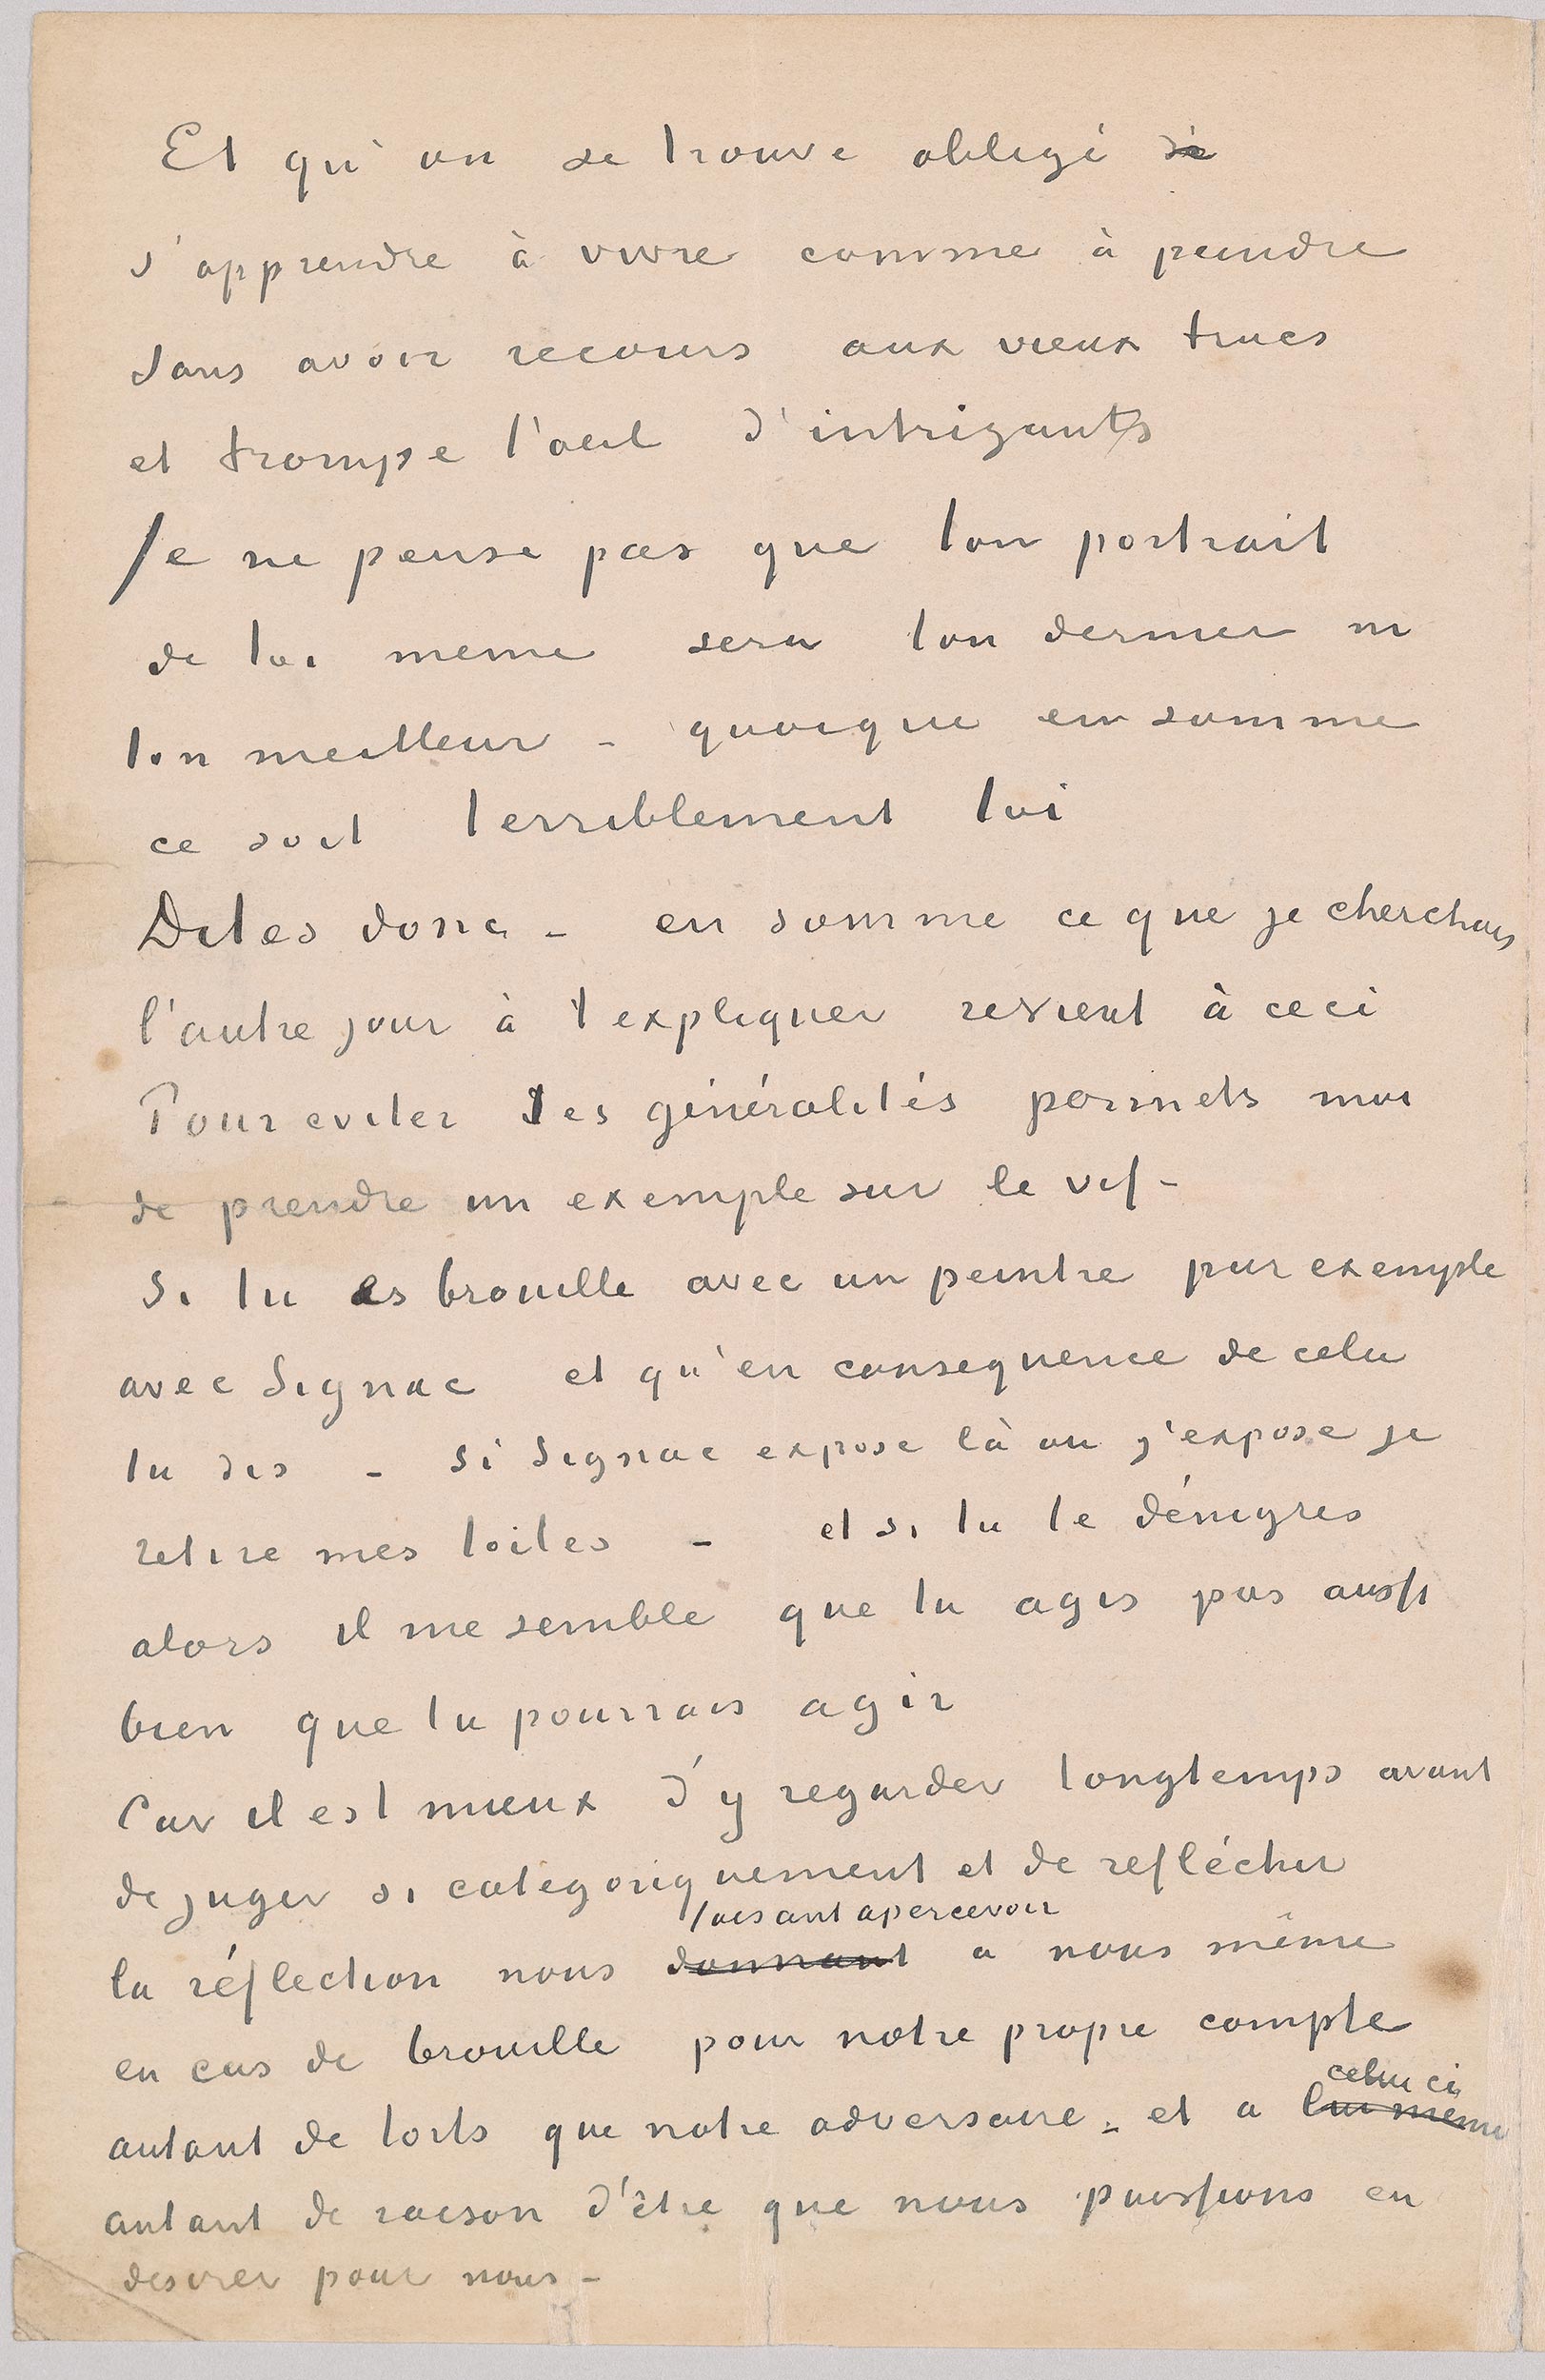 Et qu'on se trouve obligé de
s'apprendre à vivre comme à peindre
sans avoir recours aux vieux trucs
et trompe l'oeil d'intrigants
Je ne pense pas que ton portrait
de toi meme sera ton dernier ni
ton meilleur - quoique en somme
ce soit terriblement toi
Dites donc - en somme ce que je cherchais
l'autre jour à t'expliquer revient à ceci
Pour eviter les généralités permets moi
de prendre un exemple sur le vif -
Si tu es brouille avec un peintre par exemple
avec Signac et qu'en consequence de cela
tu dis - si Signac expose là ou j'expose je
retire mes toiles - et si tu le dénigres
alors il me semble que tu agis pas aussi
bien que tu pourrais agir
Car il est mieux d'y regarder longtemps avant
de juger si categoriquement et de reflécher
faisant apercevoir
la réflection nous donnant a nous même
en cas de brouille pour notre propre compte
celui ci
autant de torts que notre adversaire - et a lui meme
autant de raison d'être que nous puissions en
desirer pour nous -